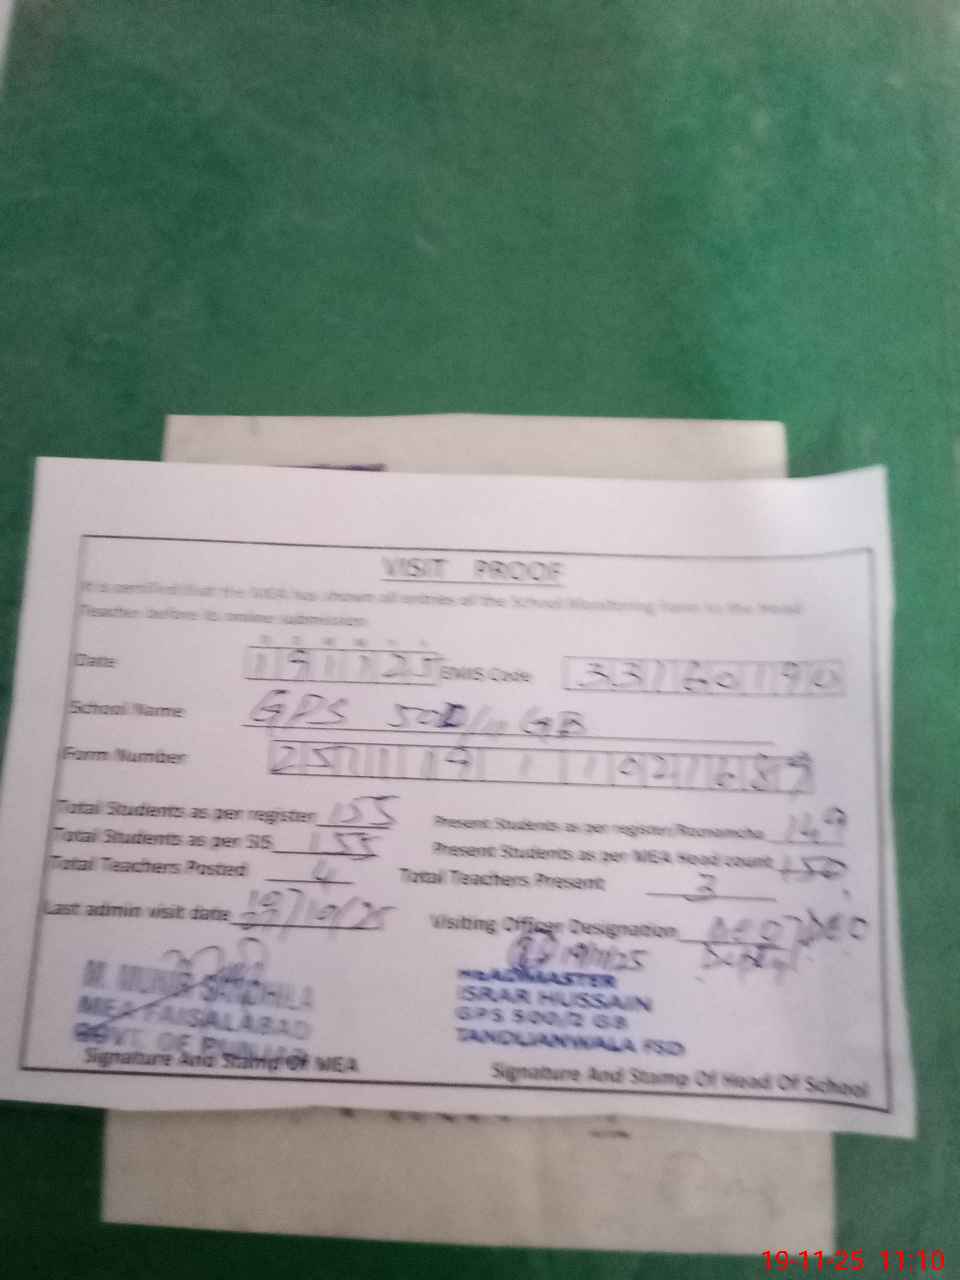 VISIT PROOF
It is certified that the MEA has shown all entries of the School Monitoring Form to the Head
Teacher before its online submission
Date 191125 EMIS Code 33160190
School Name GPS 500/ GB
Form Number
Total Students as per register 155 Present Students as per register/Roznamcha 149
Total Students as per SIS 155 Present Students as per MEA Head count 150
Total Teachers Posted 4 Total Teachers Present 3
Last admin visit date /10/25 Visiting Officer Designation
19/11/25
M. MUNIR SANDHILA
MEA FAISALABAD
GOVT. OF PUNJAB
HEADMASTER
ISRAR HUSSAIN
GPS 500/2 GB
TANDLIANWALA FSD
Signature And Stamp Of MEA
Signature And Stamp Of Head Of School
19-11-25 11:10